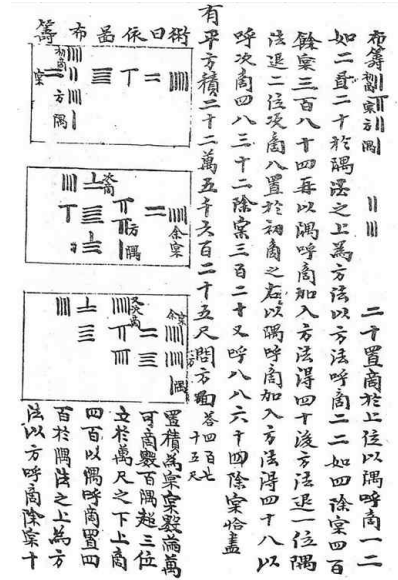 布筭 初商 實 方 隅 二十置商於上位以隅呼商一二
如二置二十於隅法之上為方法以方法呼商二二如四除實四百
餘實三百八十四再以隅呼商加入方法得四十後方法退一位隅
法退二位次商八置於初商之右以隅呼商加入方法得四十八以
呼次商四八三十二除實三百二十又呼八八六十四除實恰盡
有平方積二十二萬五千六百二十五尺問方面 答四百七十五尺
術曰依啚布籌
初商 實 方 隅
次商 余實 方 隅
又次商 余實 方 隅
置積為實實數滿萬
可商數百隅超三位
立於萬尺之下上商
四百以隅呼商置四
百於隅法之上為方
法以方呼商除實十